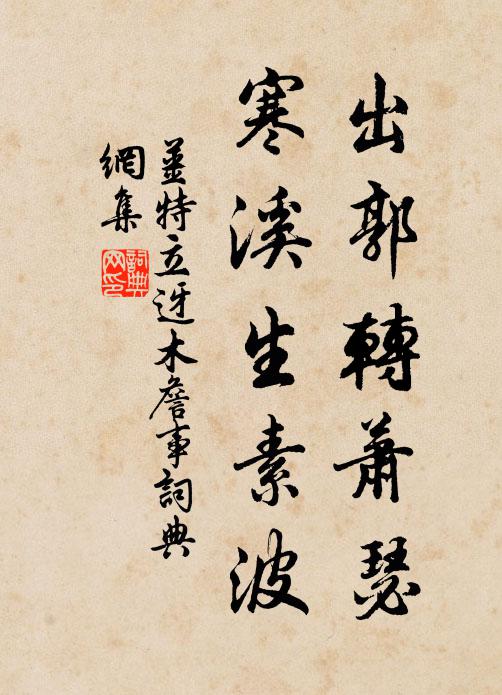 出郭轉蕭瑟
寒溪生素波
姜特立迓木詹事詞典
網集
詞典網印